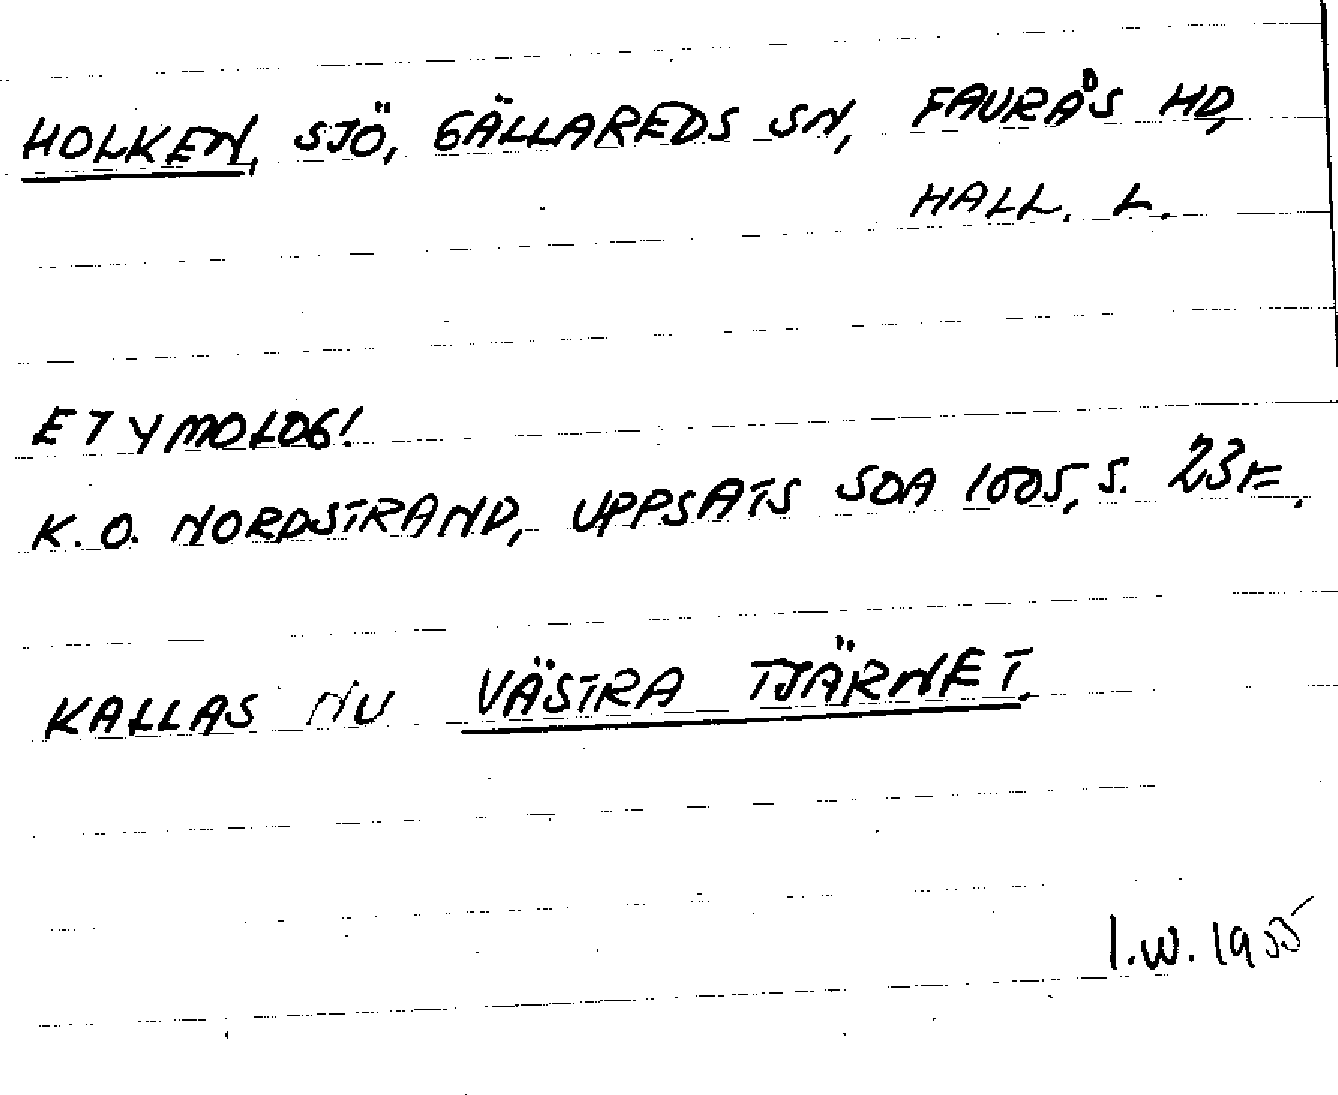 HOLKEN, SJÖ, GÄLLAREDS SN, FAURÅS HD,
HALL. L.
ETYMOLOG!
K.O. NORDSTRAND, UPPSATS SOA 1005, S. 23F.
KALLAS NU VÄSTRA TJÄRNET.
I.W. 1955